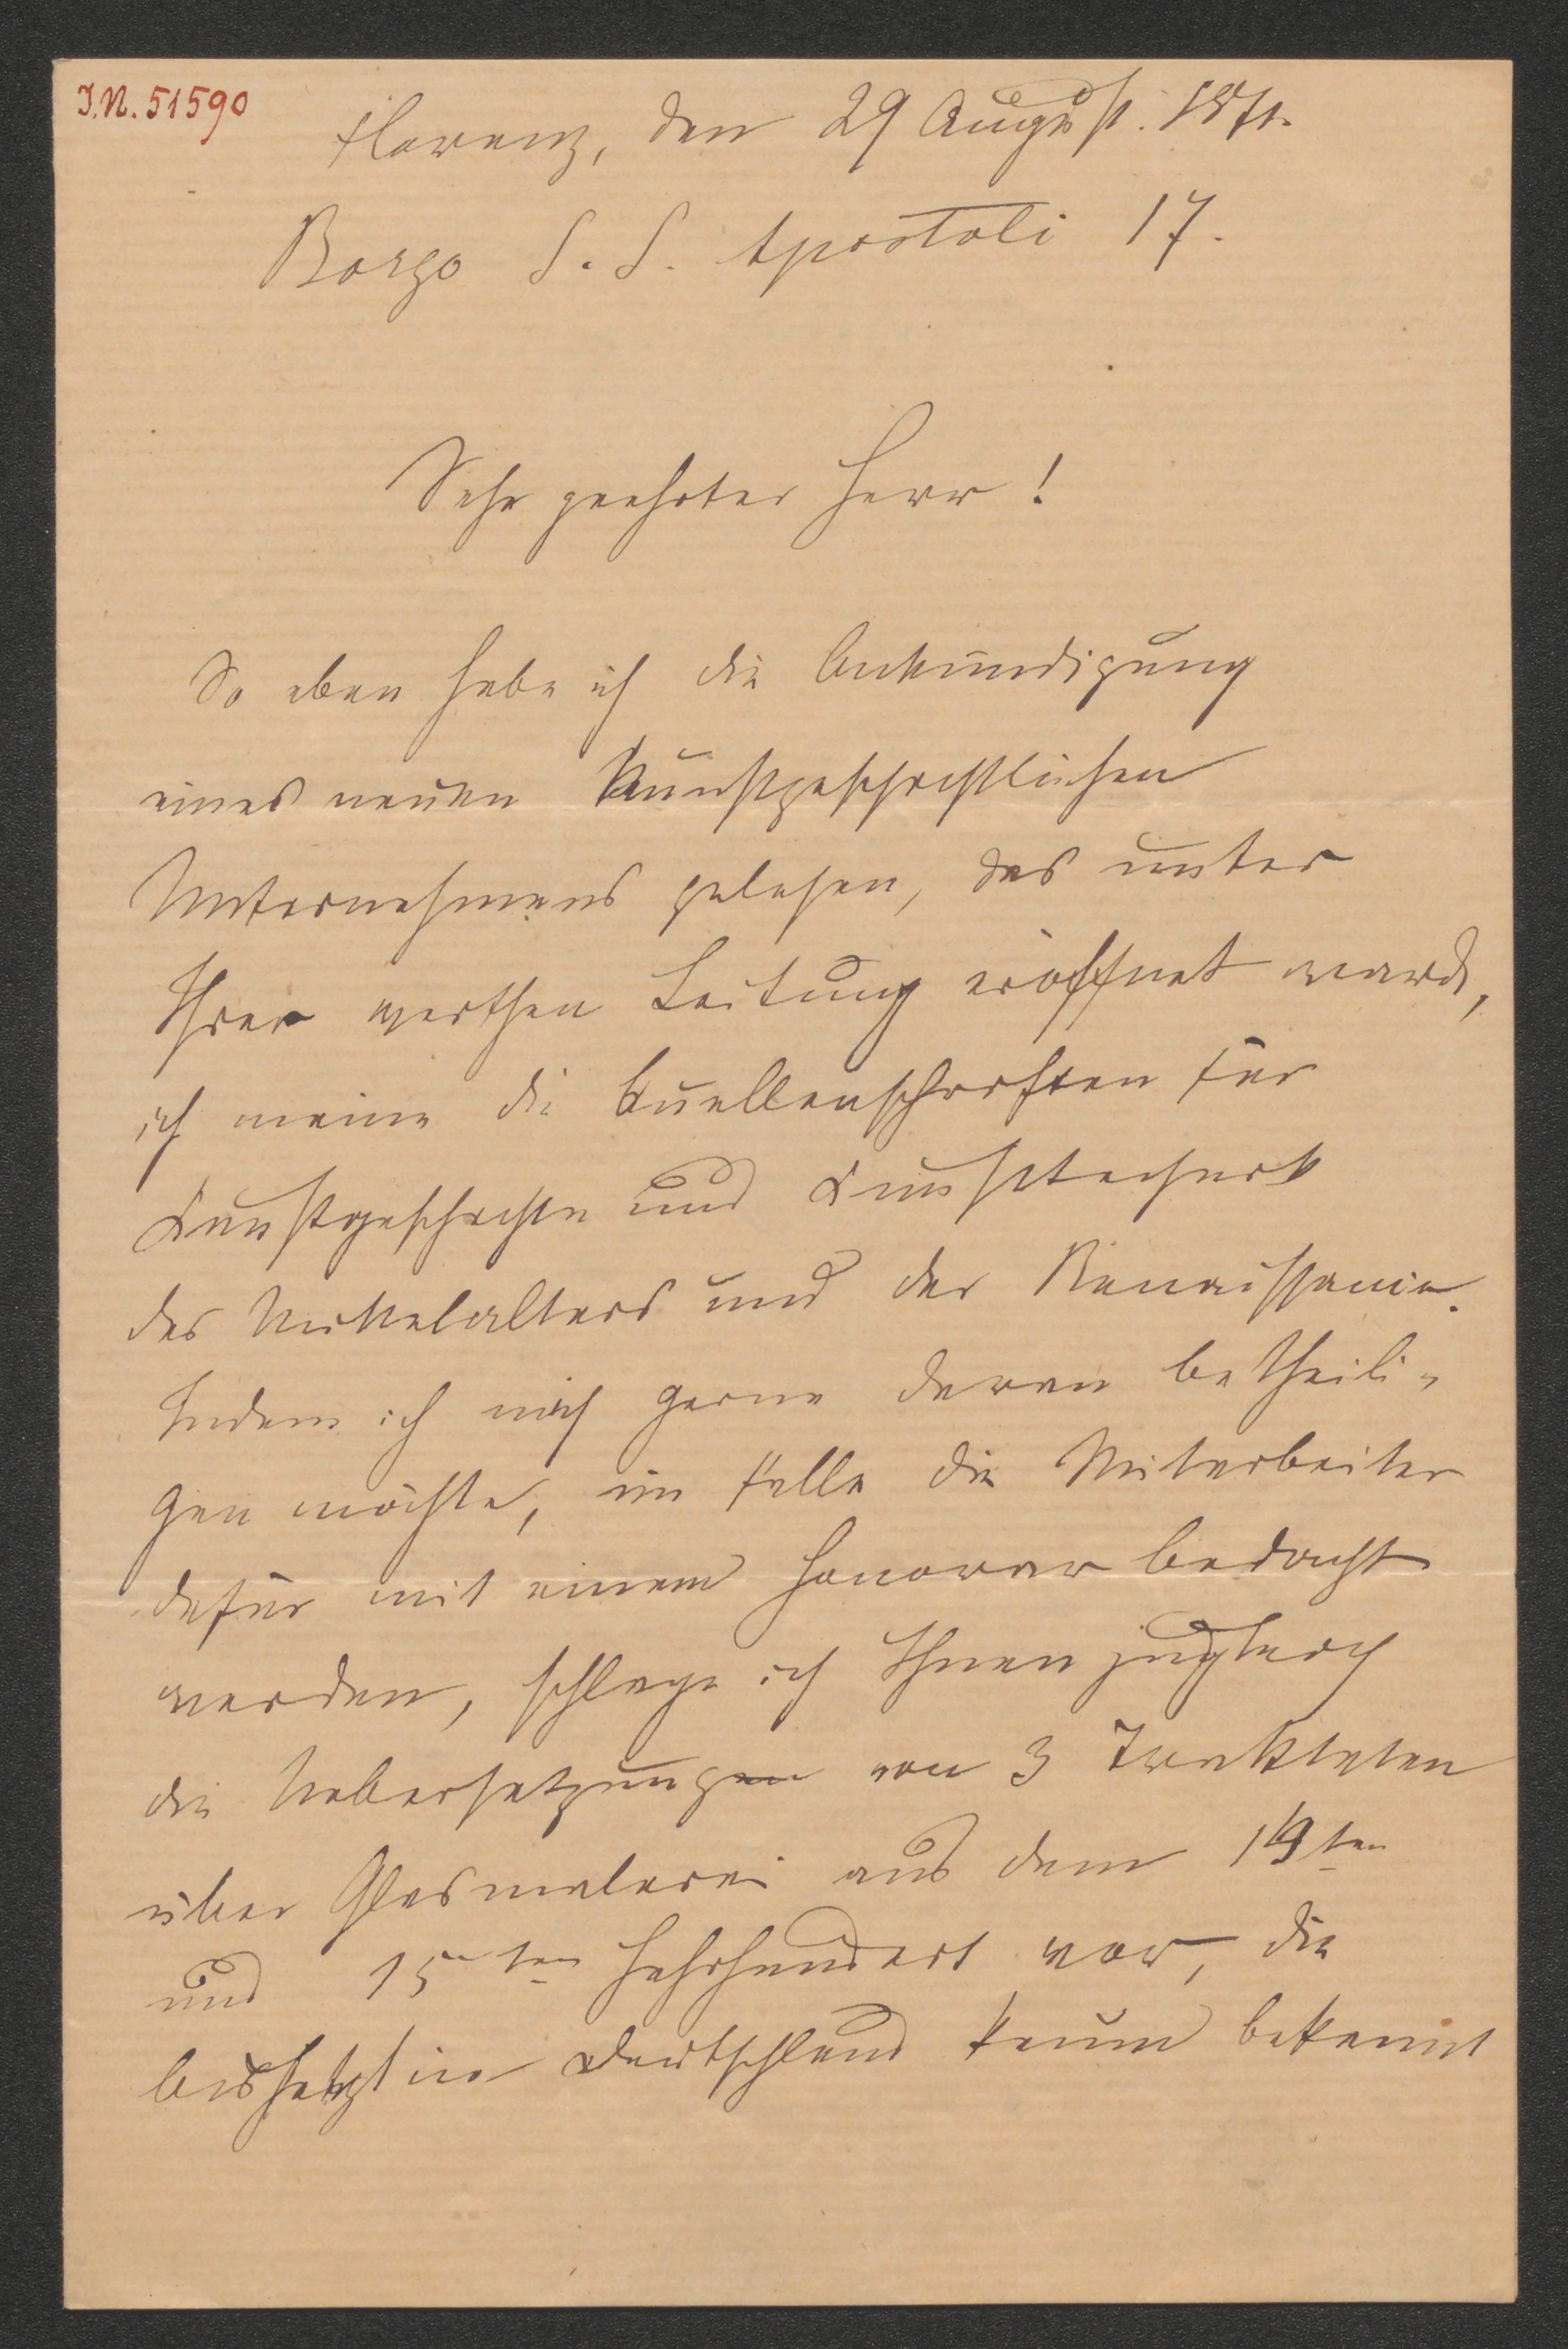 I.N. 51590
Florenz, den 29 August. 1871.
Borgo S. S. Apostoli 17.
Sehr geehrter Herr!
So eben habe ich die Ankündigung
eines neuen Kunstgeschichtlichen
Unternehmens gelesen, das unter
Ihrer werthen Leitung eröffnet ward,
ich meine die Quellenschriften für
Kunstgeschichte und Kunsttechnik
des Mittelalters und der Renaissance.
Indem ich mich gerne daran betheili-
gen möchte, im Falle die Mitarbeiter
dafür mit einem Honorar bedacht
werden, schlage ich Ihnen zugleich
die Uebersetzungen von 3 Traktaten
über Glasmalerei aus dem 14ten
und 15ten Jahrhundert vor, die
bis jetzt in Deutschland kaum bekannt